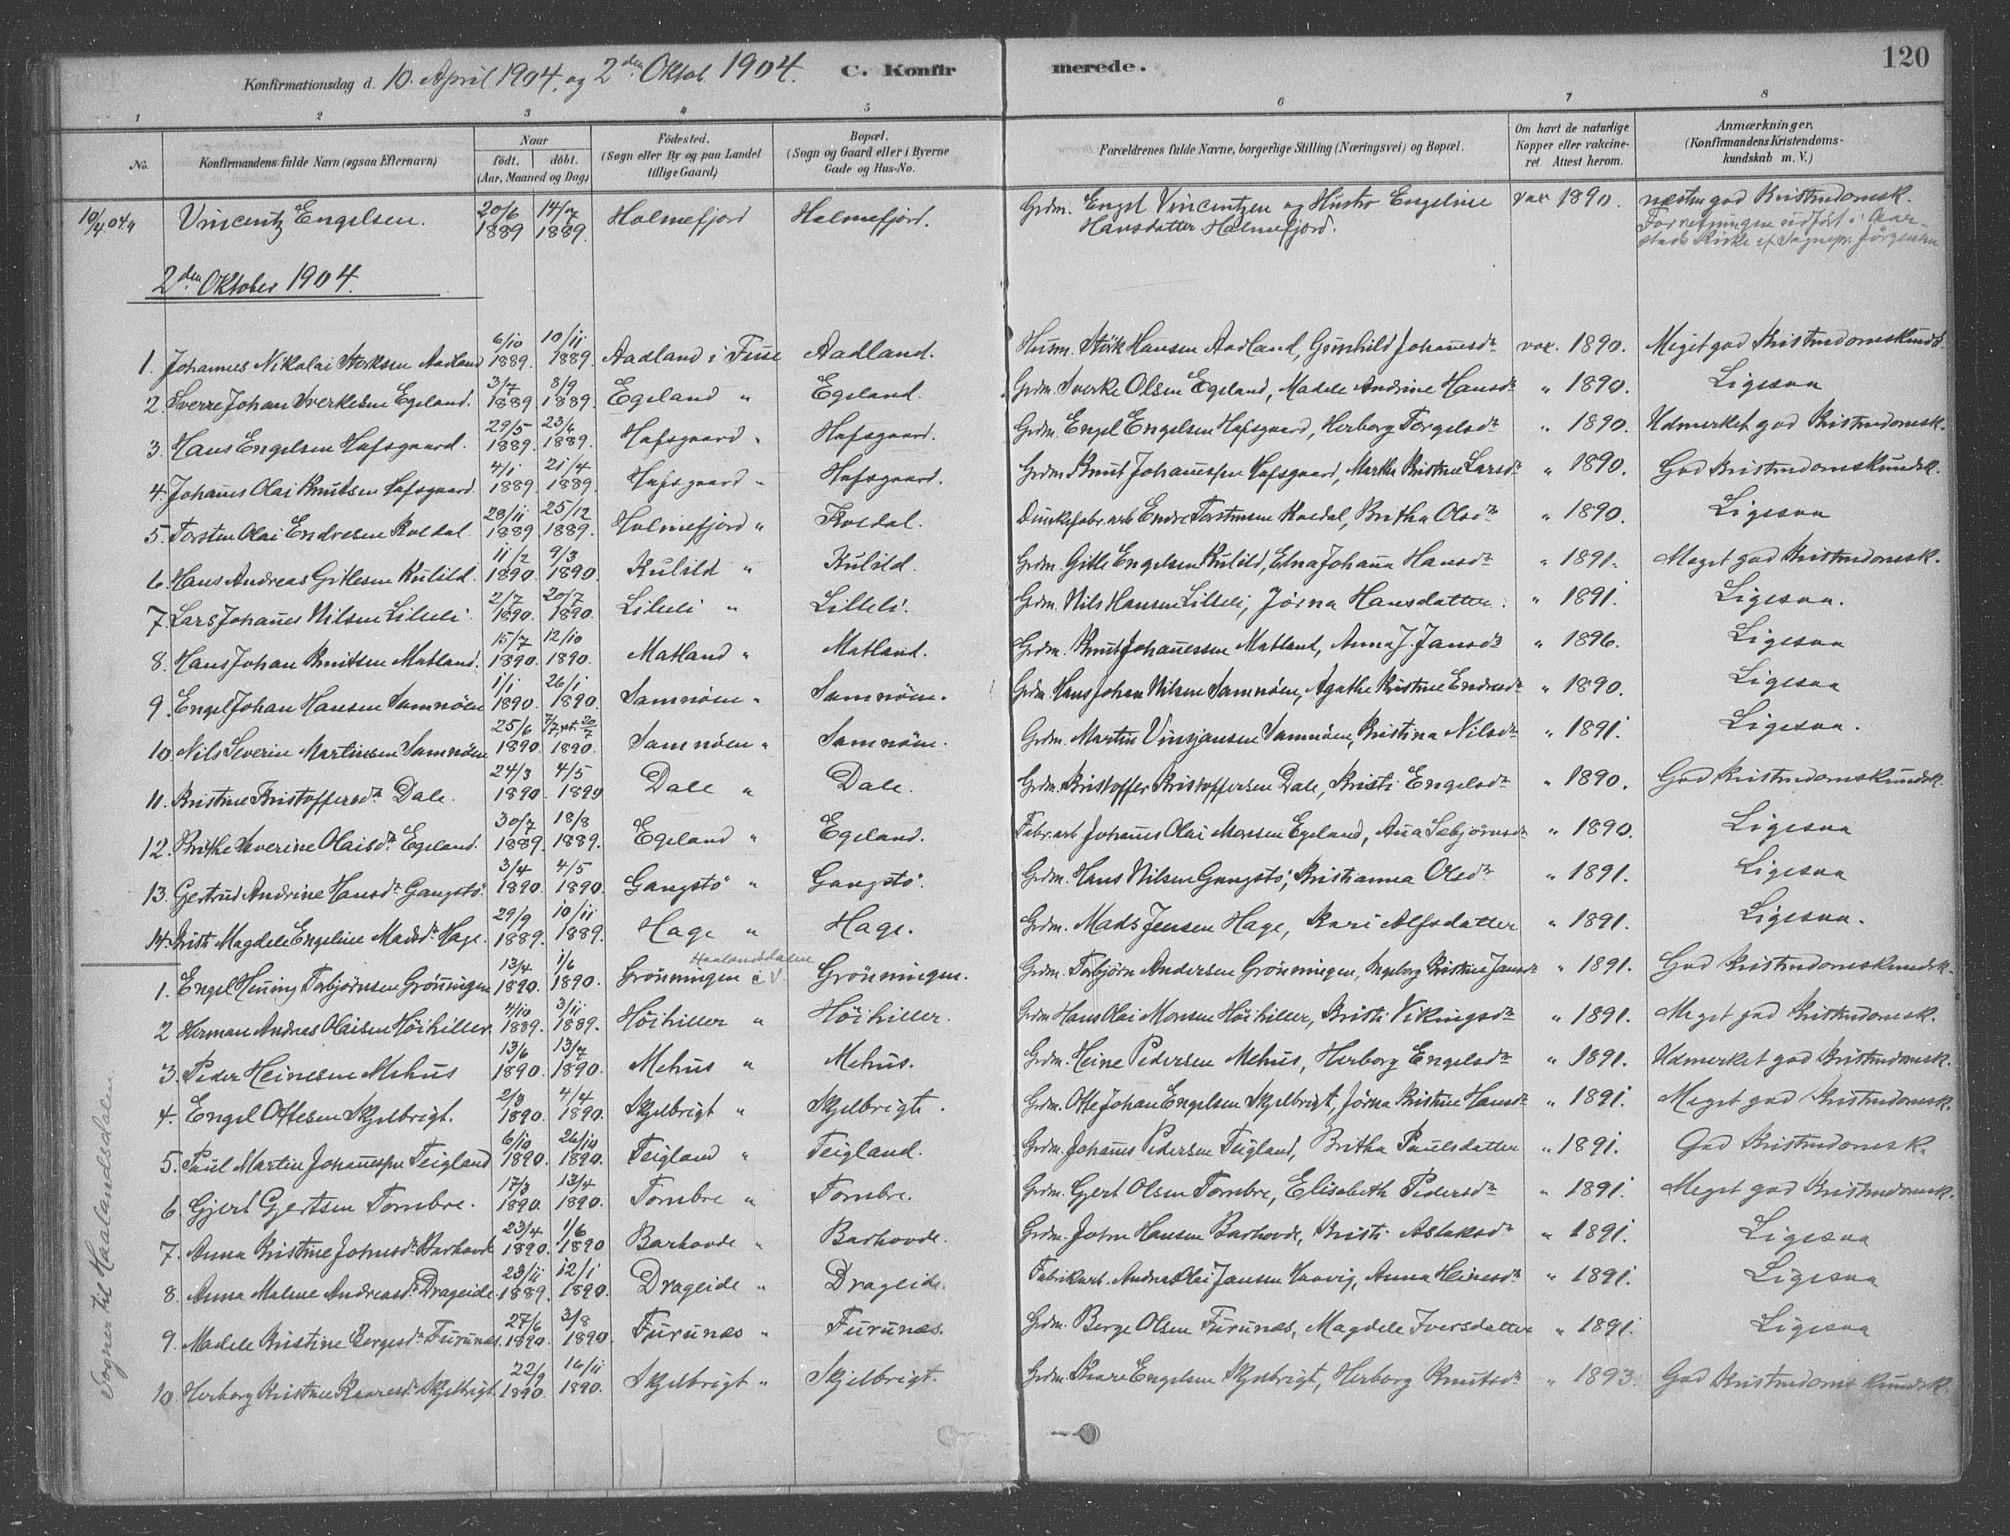 120
Konfirmationsdag d. 10. April 1904. og 2den Oktob 1904. C. Konfirmerede.
1 2 3 4 5 6 7 8
No. Konfirmandens fulde Navn (ogsaa Efternavn) Naar födt. döbt. (Aar, Maaned og Dag) Födested. (Sogn eller By og paa Landet tillige Gaard) Bopæl. (Sogn og Gaard eller i Byerne Gade og Hus-No. Forældrenes fulde Navne, borgerlige Stilling (Næringsvei) og Bopæl. Om havt de naturlige Kopper eller vakcineret Attest herom. Anmærkninger, (Konfirmandens Kristendomskundskab m. V.)
10/4 04 Vincentz Engelsen. 20/6 1889 14/7 1889. Holmefjord Holmefjord. Grdm. Engel Vincentzen og Hustro Engeline Hansdatter Holmefjord. vac 1890. næsten god Kristendomsk.
Forretningen udfört i Aarstads Kirke af Sognepr. Jörgensen
2den Oktober 1904.
1. Johannes Nikolai Störksen Aadland 6/10 1889. 10/11 1889. Aadland i Fuse Aadland. Husm. Störk Hansen Aadland, Gunhild Johansdtr vac. 1890. Meget god Kristendomskundsk.
2. Sverre Johan Sverkesen Egeland. 3/7 1889. 8/9 1889. Egeland " Egeland. Grdm. Sverke Olsen Egeland, Madele Andrine Hansdtr " 1890. Ligesaa
3. Hans Engelsen Hafsgaard. 29/5 1889. 23/6 1889. Hafsgaard " Hafsgaard. Grdm. Engel Engelsen Hafsgaard, Herborg Torgelsdtr " 1890. Udmerket god Kristendomsk.
4. Johannes Olai Knutsen Hafsgaard 4/1 1889. 21/4 1889. Hafsgaard " Hafsgaard. Grdm. Knut Johannessen Hafsgaard, Marthe Kristine Larsdtr " 1890. God Kristendomskundsk.
5. Torsten Olai Endresen Koldal. 28/11 1889 25/12 1889. Holmefjord " Koldal. Endre Torstensen Koldal, Britha Olsdtr " 1890. Ligesaa
6. Hans Andreas Gitlesen Kulild. 11/2 1890. 9/3 1890. Kulild " Kulild. Grdm. Gitle Engelsen Kulild, Elna Johana Hansdtr " 1891. Meget god Kristendomsk.
7. Lars Johannes Nilsen Lilleli. 2/7 1890. 20/7 1890. Lilleli " Lilleli. Grdm. Nils Hansen Lilleli, Jörna Hansdatter. " 1891. Ligesaa.
8. Hans Johan Knutsen Matland. 15/7 1890. 12/10 1890. Matland " Matland. Grdm. Knut Johannessen Matland, Anna J. Jansdtr " 1896. Ligesaa
9. Engel Johan Hansen Samnöen 1/1 1890. 26/1 1890. Samnöen " Samnöen. Grdm. Hans Johan Nilsen Samnöen, Agathe Kristine Endresdtr " 1890. Ligesaa
10. Nils Severin Martinsen Samnöen 25/6 1890. 7/7 st. 20/7 1890. Samnöen " Samnöen. Grdm. Martin Vinsjansen Samnöen, Kristina Nilsdtr " 1891. Ligesaa.
11. Kristine Kristoffersdtr Dale. 24/3 1890. 4/5 1890 Dale " Dale. Grdm. Kristoffer Kristoffersen Dale, Kristi Engelsdtr " 1890. God Kristendomskundsk.
12. Brithe Severine Olaisdtr Egeland. 30/7 1889. 18/8 1889. Egeland " Egeland. Fabr.arb. Johannes Olai Monsen Egeland, Ana Sebjörnsdtr " 1890. Ligesaa
13. Gertrud Andrine Hansdtr Gangstö. 3/4 1890. 4/5 1890. Gangstö " Gangstö. Grdm. Hans Nilsen Gangstö, Kristianna Olsdtr " 1891. Ligesaa
14. Kristi Magdele Engeline Madsdtr Hage. 29/9 1889. 10/11 1889. Hage " Hage. Grdm. Mads Jensen Hage, Kari Alfsdatter " 1891. Ligesaa.
Sogner til Haalandsdalen
1. Engel Hening Torbjörnsen Grönningen 13/4 1890. 1/6 1890. Grönningen i Haalandsdalen Grönningen. Grdm. Torbjörn Andersen Grönningen, Ingeborg Kristine Jansdtr " 1891. God Kristendomskundsk.
2 Herman Andreas Olaisen Höihiller. 4/10 1889. 3/11 1889. Höihiller " Höihiller. Grdm Hans Olai Monsen Höihiller, Kristi Vikingsdtr " 1891. Meget god Kristendomsk.
3. Peder Heinesen Mehus 13/6 1890. 13/7 1890. Mehus " Mehus. Grdm. Heine Pedersen Mehus, Herborg Engelsdtr " 1891. Udmerket god Kristendomsk.
4. Engel Ottesen Skjelbrigt. 2/3 1890. 4/4 1890. Skjelbrigt " Skjelbrigt. Grdm. Otte Johan Engelsen Skjelbrigt, Jörna Kristine Hansdtr " 1891. Meget god Kristendomsk.
5. Paul Martin Johannessen Teigland 6/10 1890. 26/10 1890. Teigland " Teigland. Grdm. Johannes Pedersen Teigland, Britha Paulsdatter " 1891. God Kristendomsk.
6. Gjert Gjertsen Tombre. 17/3 1890. 13/4 1890. Tombre " Tombre. Grdm. Gjert Olsen Tombre, Elisabeth Pedersdtr " 1891. Meget god Kristendomsk.
7. Anna Kristine Johnsdtr Barhovde 23/4 1890. 1/6 1890 Barhovde " Barhovde. Grdm. John Hansen Barhovde, Kristi Aslaksdtr " 1891. Ligesaa
8. Anna Malene Andreasdtr Drageide. 23/11 1889. 12/1 1890. Drageide " Drageide. Fabrikarb. Andreas Olai Jansen Haavig, Anna Heinesdtr " 1891. Ligesaa
9. Madele Kristine Bergesdtr Furunæs. 27/6 1890. 3/8 1890. Furunæs " Furunæs. Grdm. Berge Olsen Furunæs, Magdele Iversdatter " 1891. Ligesaa
10. Herborg Kristine Kaaresdtr Skjelbrigt. 22/9 1890. 16/11 1890. Skjelbrigt " Skjelbrigt. Grdm. Kaare Engelsen Skjelbrigt, Herborg Knutsdtr " 1893. God Kristendomskundsk.